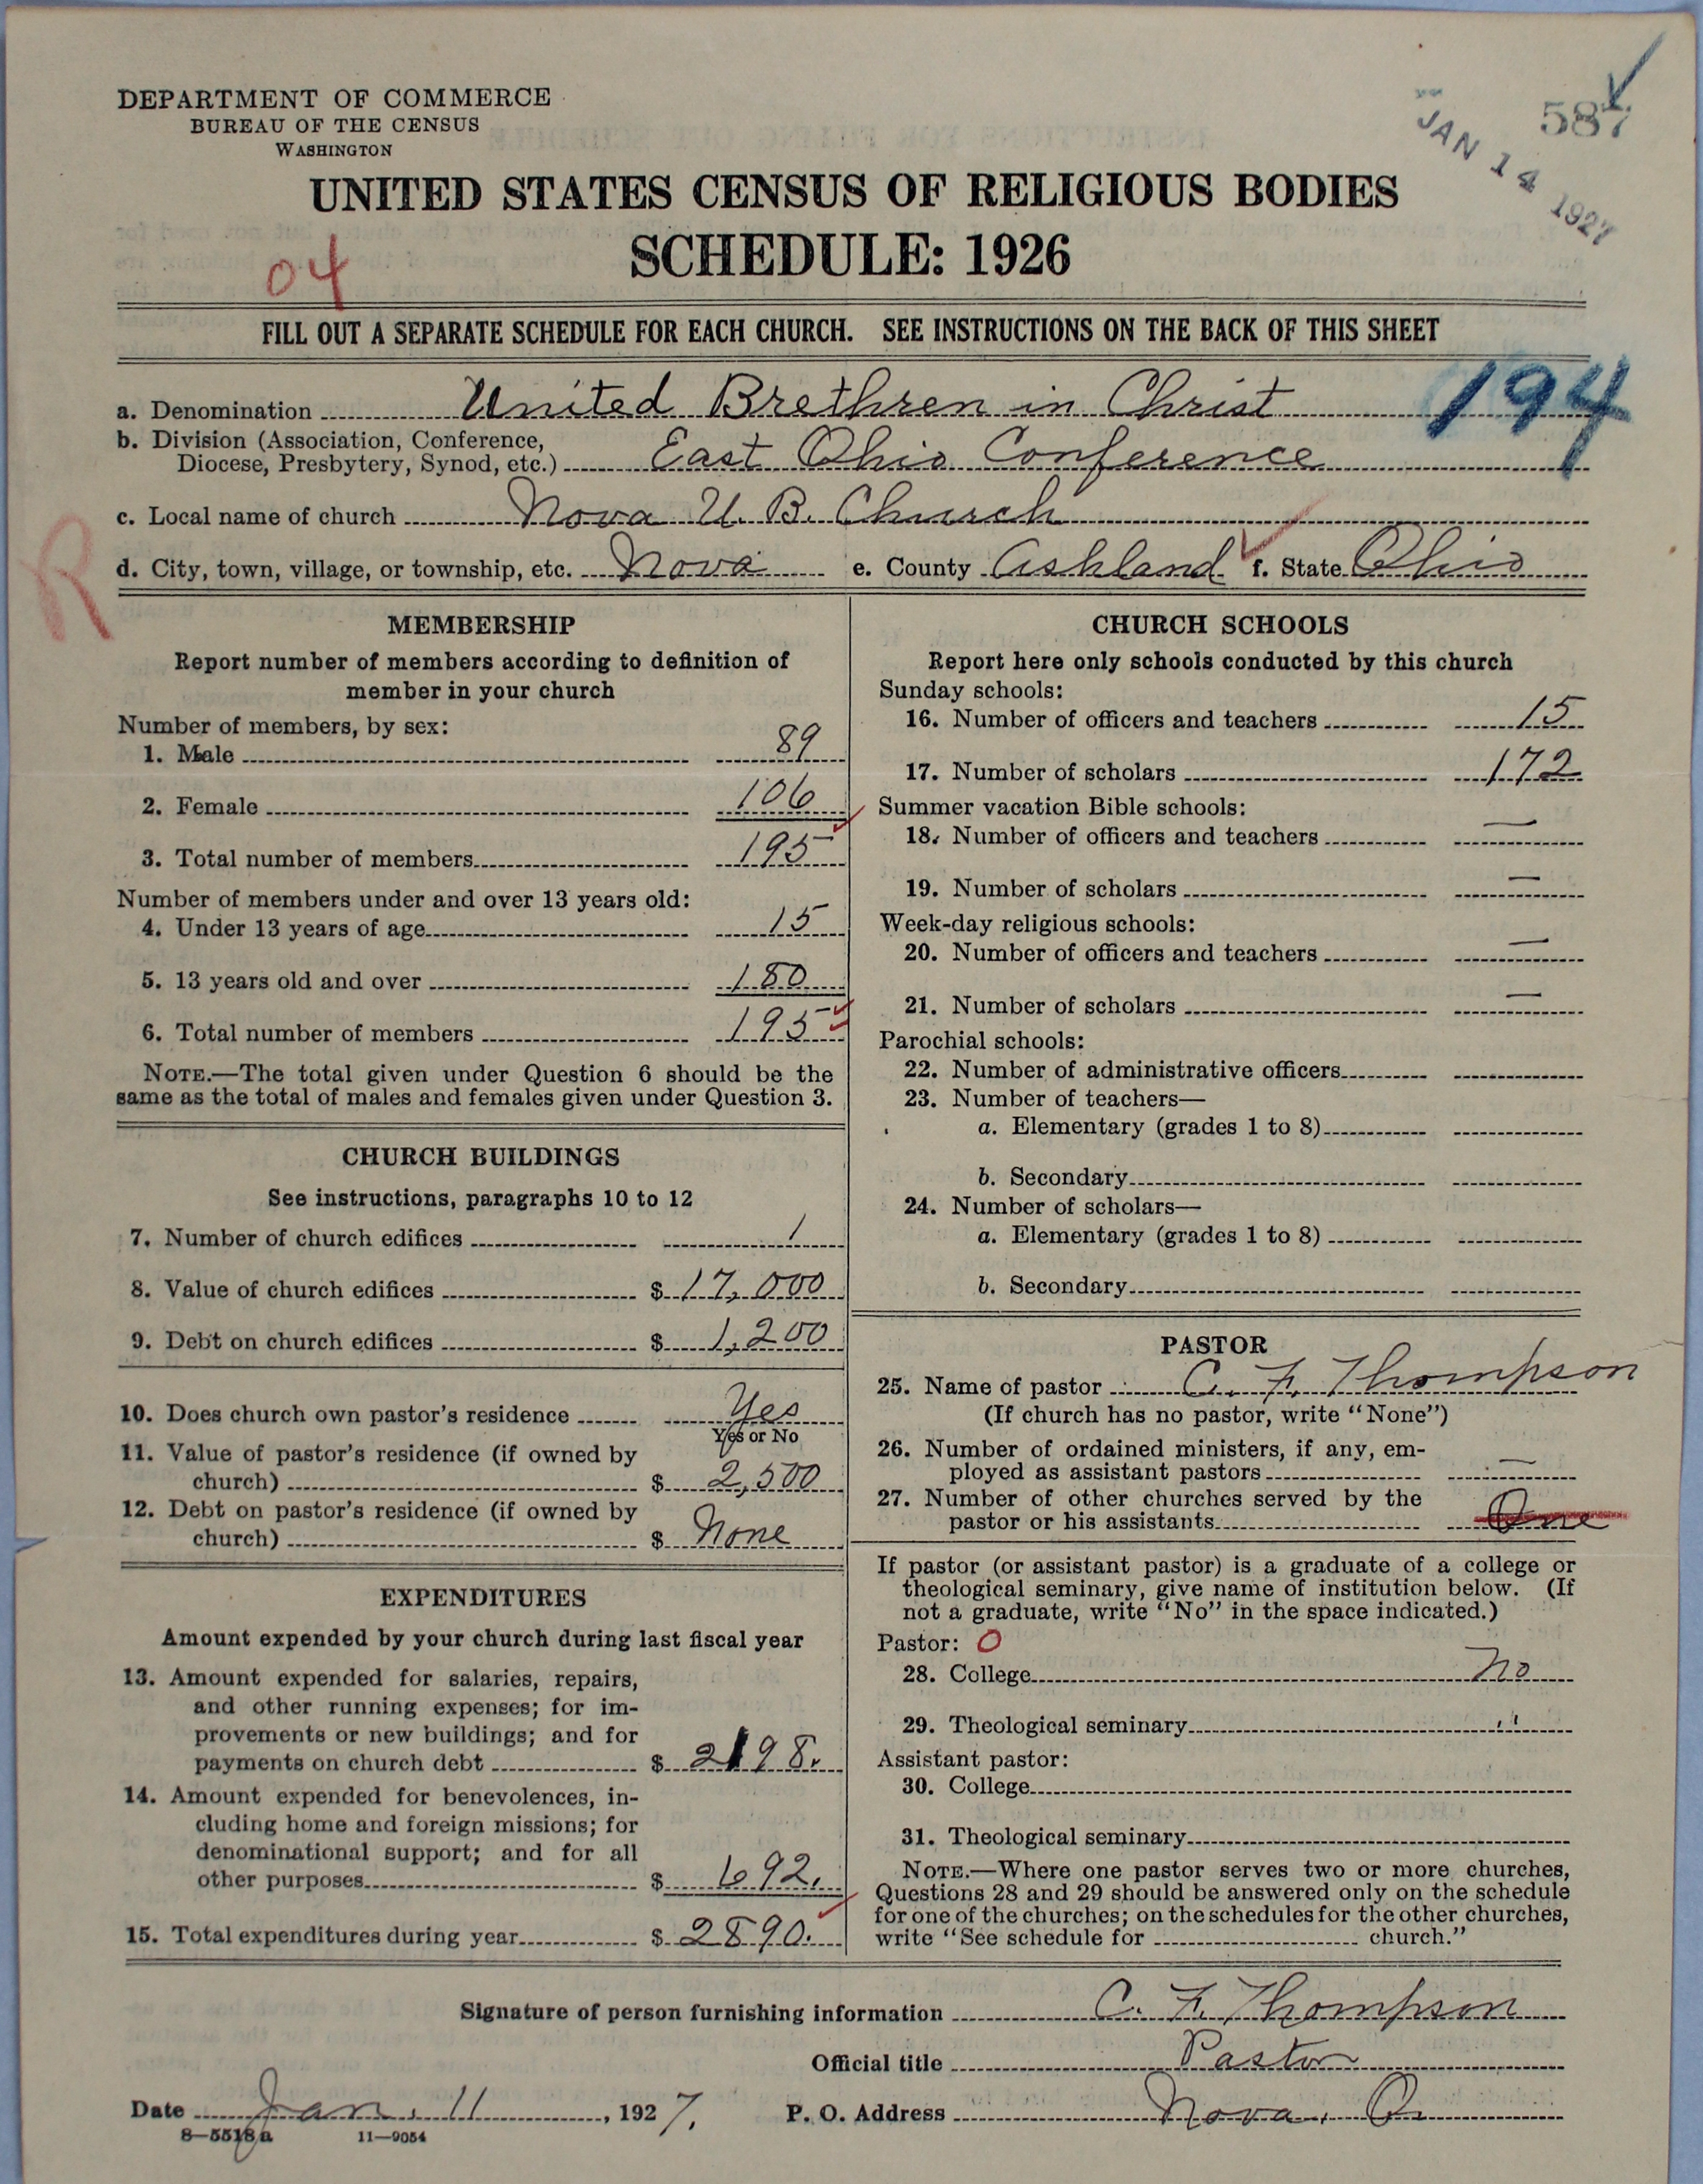 DEPARTMENT OF COMMERCE
BUREAU OF THE CENSUS
WASHINGTON
587
JAN 14 1927
UNITED STATES CENSUS OF RELIGIOUS BODIES
SCHEDULE: 1926
04
FILL OUT A SEPARATE SCHEDULE FOR EACH CHURCH. SEE INSTRUCTIONS ON THE BACK OF THIS SHEET
194
a. Denomination United Brethren in Christ
b. Division (Association, Conference,
Diocese, Presbytery, Synod, etc.) East Ohio Conference
c. Local name of church Nova U. B. Church
R
d. City, town, village, or township, etc. Nova e. County Ashland f. State Ohio
MEMBERSHIP
Report number of members according to definition of
member in your church
Number of members, by sex:
1. Male 89
2. Female 106
3. Total number of members 195
Number of members under and over 13 years old:
4. Under 13 years of age 15
5. 13 years old and over 180
6. Total number of members 195
NOTE.—The total given under Question 6 should be the
same as the total of males and females given under Question 3.
CHURCH BUILDINGS
See instructions, paragraphs 10 to 12
7. Number of church edifices 1
8. Value of church edifices $ 17,000
9. Debt on church edifices $ 1,200
10. Does church own pastor's residence Yes
Yes or No
11. Value of pastor's residence (if owned by
church) $ 2,500
12. Debt on pastor's residence (if owned by
church) $ None
EXPENDITURES
Amount expended by your church during last fiscal year
13. Amount expended for salaries, repairs,
and other running expenses; for im-
provements or new buildings; and for
payments on church debt $ 2198.
14. Amount expended for benevolences, in-
cluding home and foreign missions; for
denominational support; and for all
other purposes $ 692.
15. Total expenditures during year $ 2890.
CHURCH SCHOOLS
Report here only schools conducted by this church
Sunday schools:
16. Number of officers and teachers 15
17. Number of scholars 172
Summer vacation Bible schools:
18. Number of officers and teachers —
19. Number of scholars —
Week-day religious schools:
20. Number of officers and teachers —
21. Number of scholars —
Parochial schools:
22. Number of administrative officers
23. Number of teachers—
a. Elementary (grades 1 to 8)
b. Secondary
24. Number of scholars—
a. Elementary (grades 1 to 8)
b. Secondary
PASTOR
25. Name of pastor C. F. Thompson
(If church has no pastor, write "None")
26. Number of ordained ministers, if any, em-
ployed as assistant pastors —
27. Number of other churches served by the
pastor or his assistants One
If pastor (or assistant pastor) is a graduate of a college or
theological seminary, give name of institution below. (If
not a graduate, write "No" in the space indicated.)
Pastor: 0
28. College No
29. Theological seminary "
Assistant pastor:
30. College
31. Theological seminary
NOTE.—Where one pastor serves two or more churches,
Questions 28 and 29 should be answered only on the schedule
for one of the churches; on the schedules for the other churches,
write "See schedule for church."
Signature of person furnishing information C. F. Thompson
Official title Pastor
Date Jan. 11, 1927. P. O. Address Nova, O.
8—5518a 11—9054